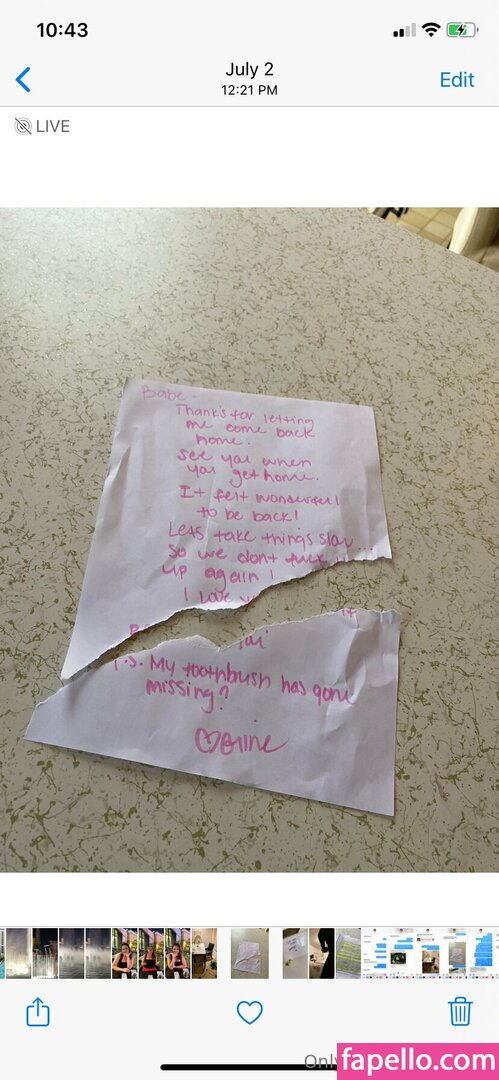 10:43
July 2
12:21 PM
Edit
LIVE
Babe -
Thanks for letting
me come back
home.
See you when
you get home.
It felt wonderful
to be back!
Lets take things slow...
So we dont fuck
up again!
I love
P.S. My toothbush has gone
missing?
Only
fapello.com